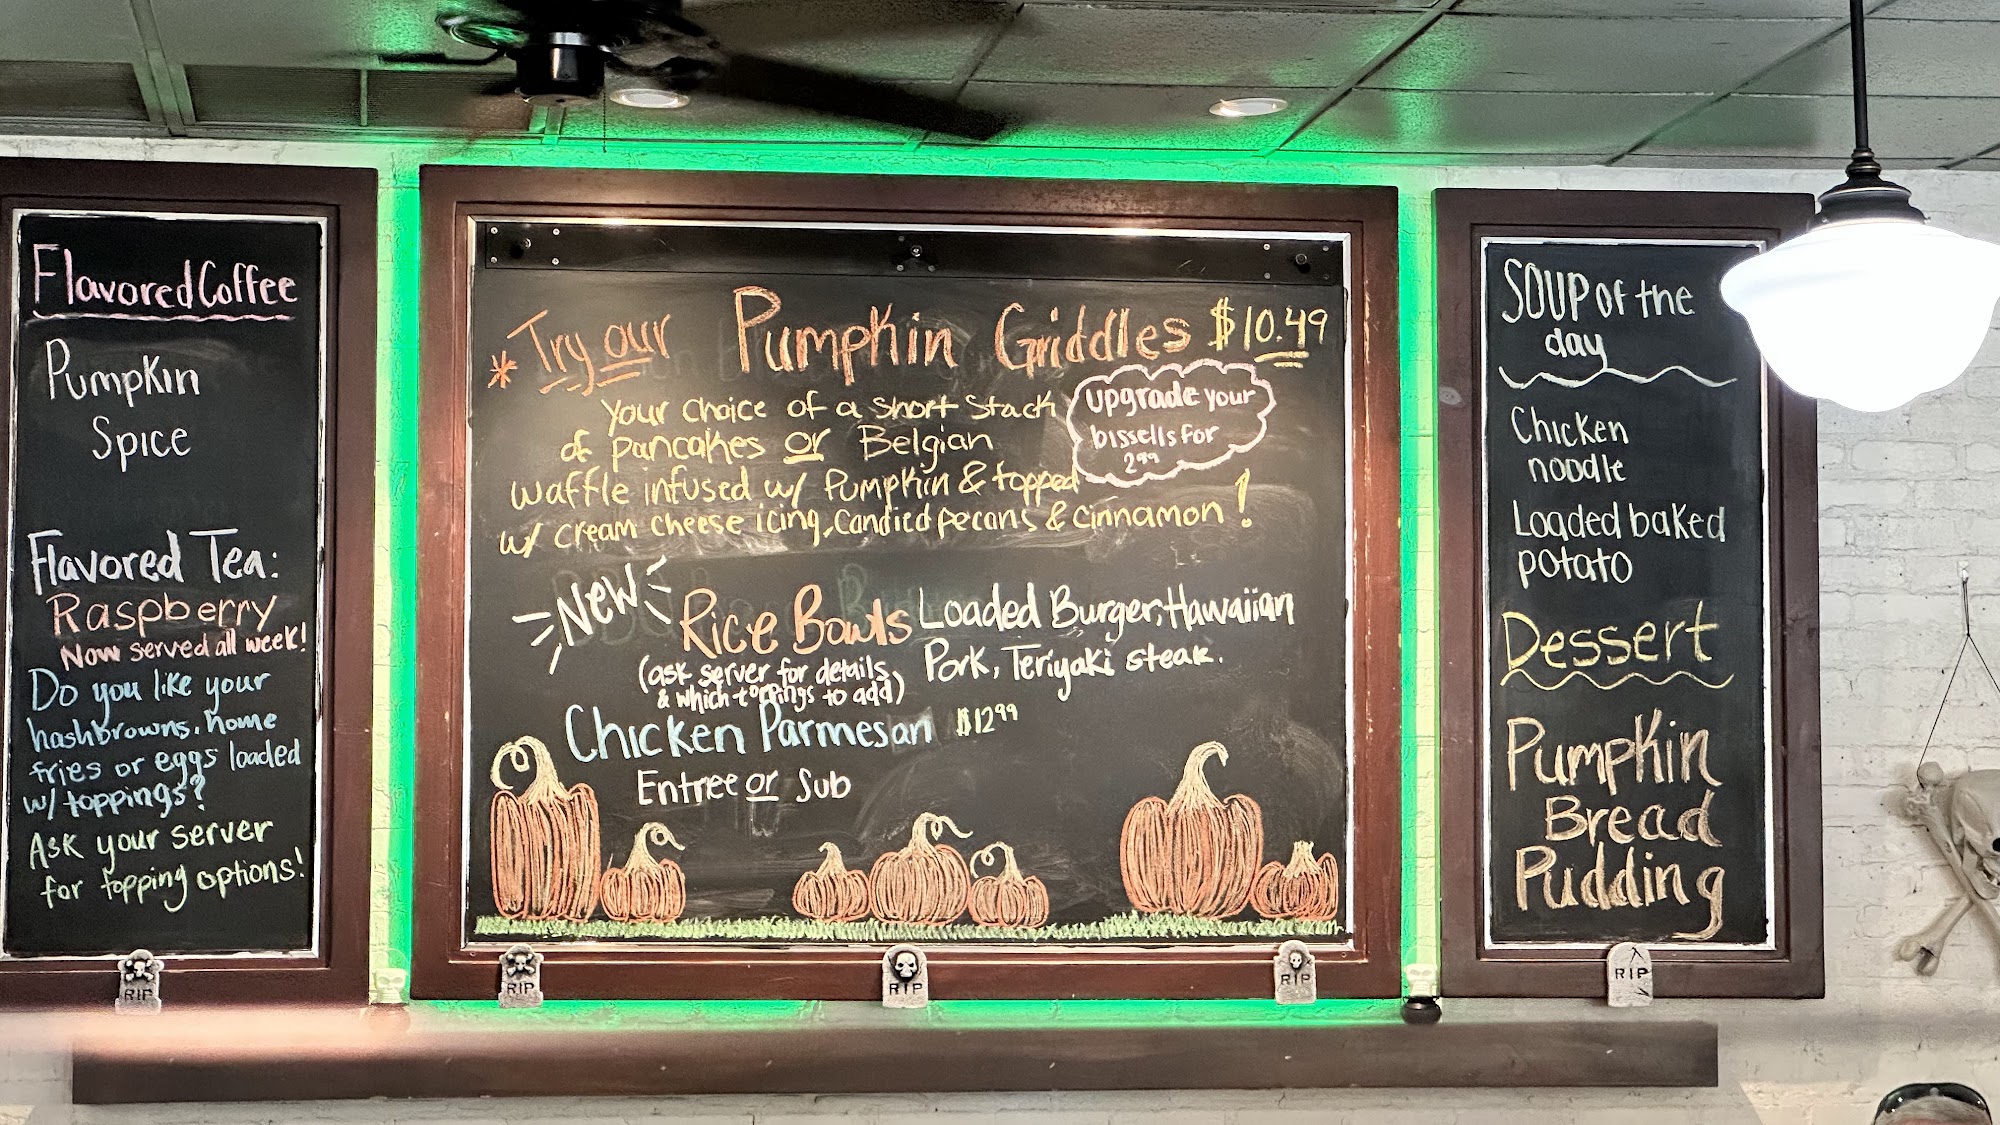 Flavored Coffee
Pumpkin
Spice
Flavored Tea:
Raspberry
Now served all week!
Do you like your
hashbrowns, home
fries or eggs loaded
w/ toppings?
Ask your server
for topping options!
* Try our Pumpkin Griddles $10.49
your choice of a short stack
of pancakes or Belgian
waffle infused w/ Pumpkin & topped
w/ cream cheese icing, candied pecans & cinnamon!
upgrade your
bissells for
2.99
New Rice Bowls Loaded Burger, Hawaiian
Pork, Teriyaki steak.
(ask server for details
& which toppings to add)
Chicken Parmesan $12.99
Entree or Sub
SOUP of the
day
Chicken
noodle
Loaded baked
potato
Dessert
Pumpkin
Bread
Pudding
RIP
RIP
RIP
RIP
RIP